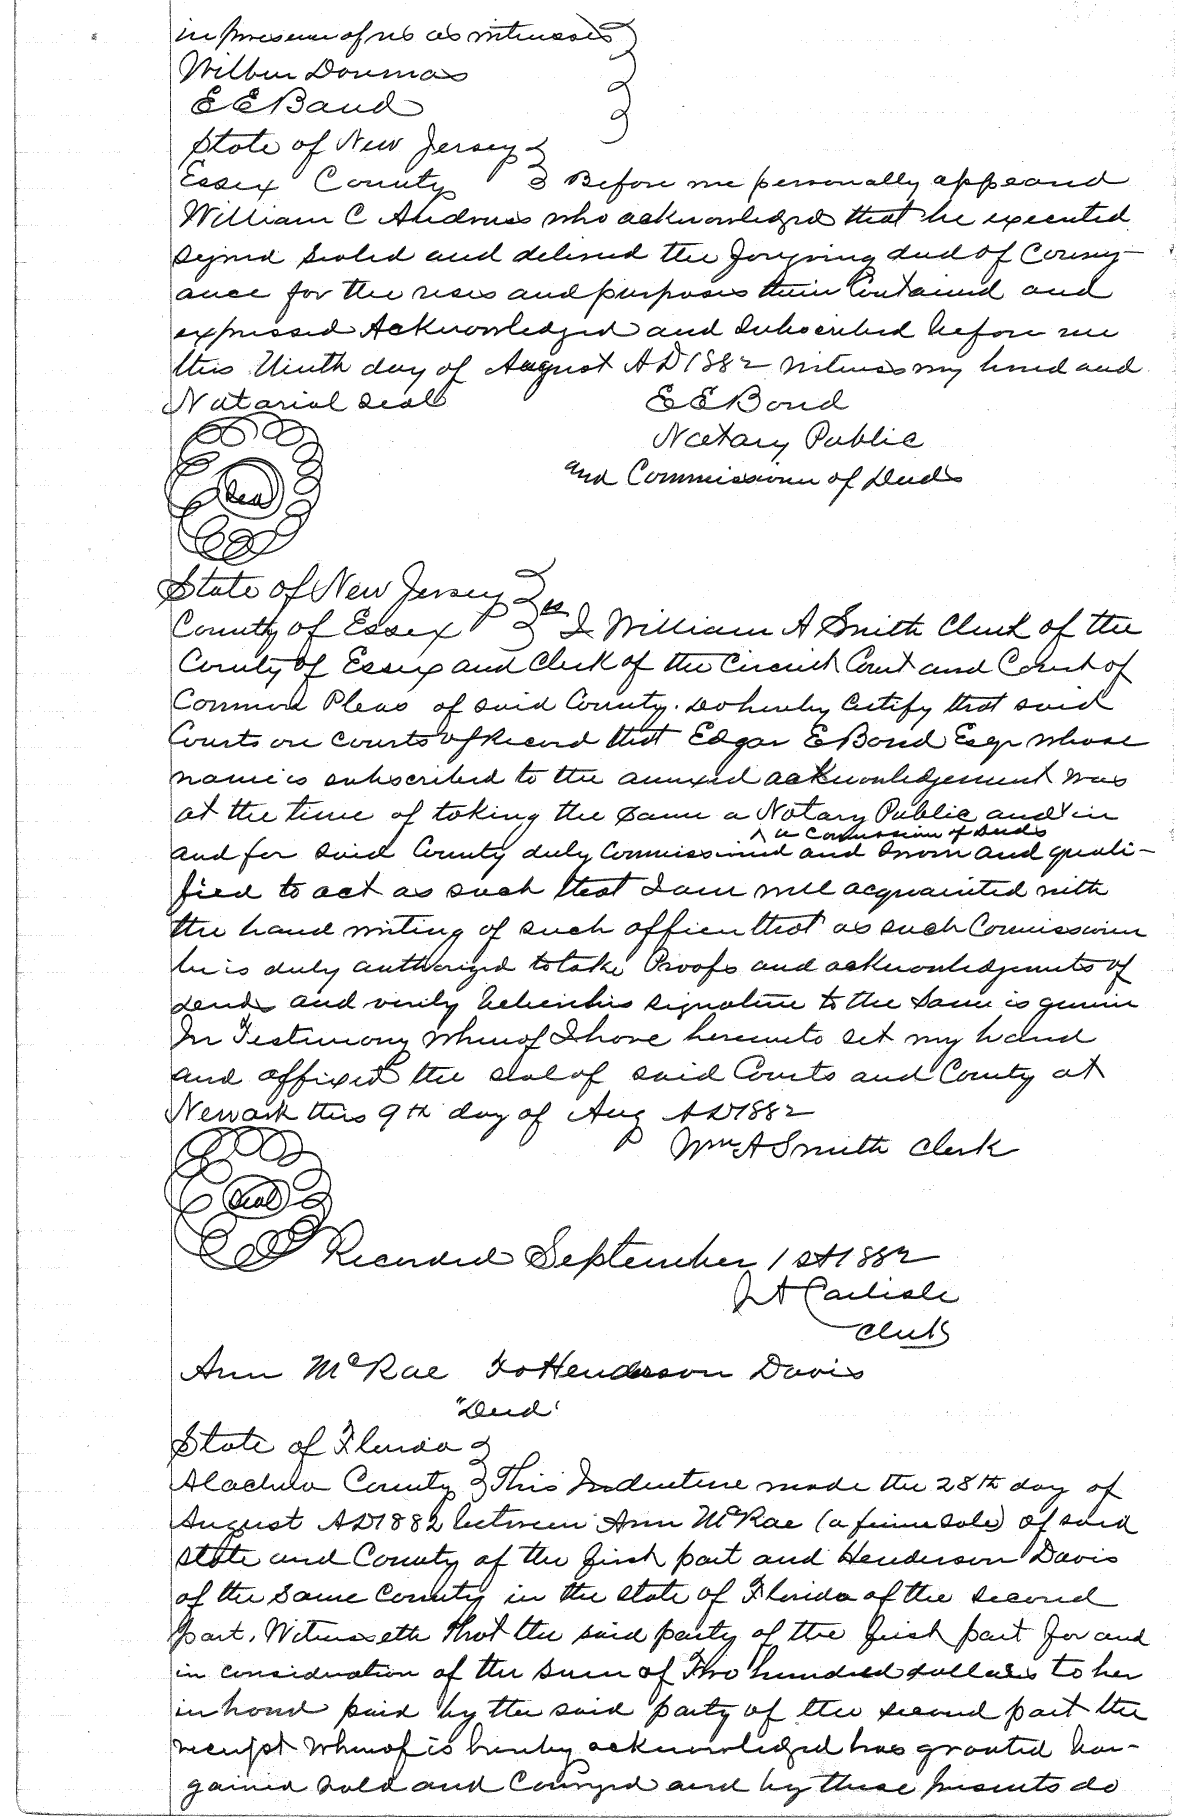 in presence of us as witnesses
Wilbur Doumas
E E Baud
State of New Jersey
Essex County Before me personally appeard
William C Andruss who acknowledged that he executed
signed sealed and delivred the foregoing deed of Convey-
ance for the uses and purposes therin Contained and
expressed Acknowledged and subscribed before me
this Ninth day of August AD 1882 witness my hand and
Notarial seal E E Bond
Notary Public
and Commissioner of Deeds
Seal
State of New Jersey
County of Essex ss I William A Smith Clerk of the
County of Essex and Clerk of the Circuit Court and Court of
Common Pleas of said County. do hereby Certify that said
Courts are courts of Record that Edgar E Bond Esqr whose
name is subscribed to the annexed acknowledgement was
at the time of taking the same a Notary Public and in
^ a Commission of Deeds
and for said County duly Commissioned and sworn and quali-
fied to act as such that I am well acquainted with
the hand writing of such officer that as such Commissioner
he is duly authorized to take Proofs and acknowledgments of
deeds and verily believe his signature to the same is genuin
In Testimony Whereof I have hereunto set my hand
and affixed the seal of said Courts and County at
Newark this 9th day of Aug AD 1882
Wm A Smith Clerk
Seal
Recorded September 1st 1882
J A Carlisle
Clerk
Ann McRae To Henderson Davis
"Deed"
State of Florida
Alachua County This Indenture made the 28th day of
August AD 1882 between Ann McRae (a feme sole) of said
state and County of the first part and Henderson Davis
of the same County in the state of Florida of the second
part. Witnesseth that the said party of the first part for and
in consideration of the sum of Two hundred dollars to her
in hand paid by the said party of the second part the
receipt Whereof is hereby acknowledged has granted bar-
gained sold and Conveyed and by these presents do